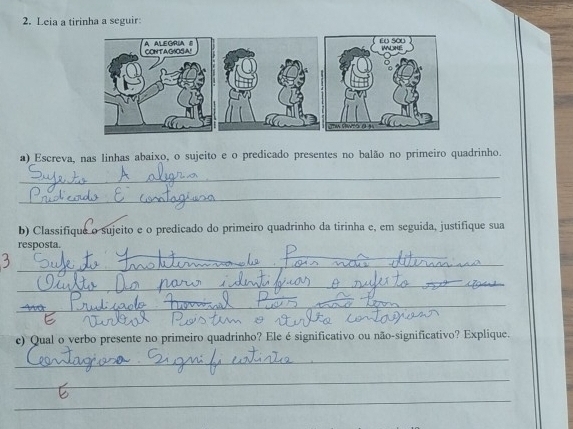 2. Leia a tirinha a seguir:
A ALEGRIA É
CONTAGIOSA!
EU SOU
IMUNE
a) Escreva, nas linhas abaixo, o sujeito e o predicado presentes no balão no primeiro quadrinho.
Sujeito A alegria
Predicado É contagiosa
b) Classifique o sujeito e o predicado do primeiro quadrinho da tirinha e, em seguida, justifique sua
resposta.
3 Sujeito Pois não
Oculto Da para identificar o sujeito
Predicado Pois não tem
E Verbal Pois tem o
c) Qual o verbo presente no primeiro quadrinho? Ele é significativo ou não-significativo? Explique.
Contagiosa
E